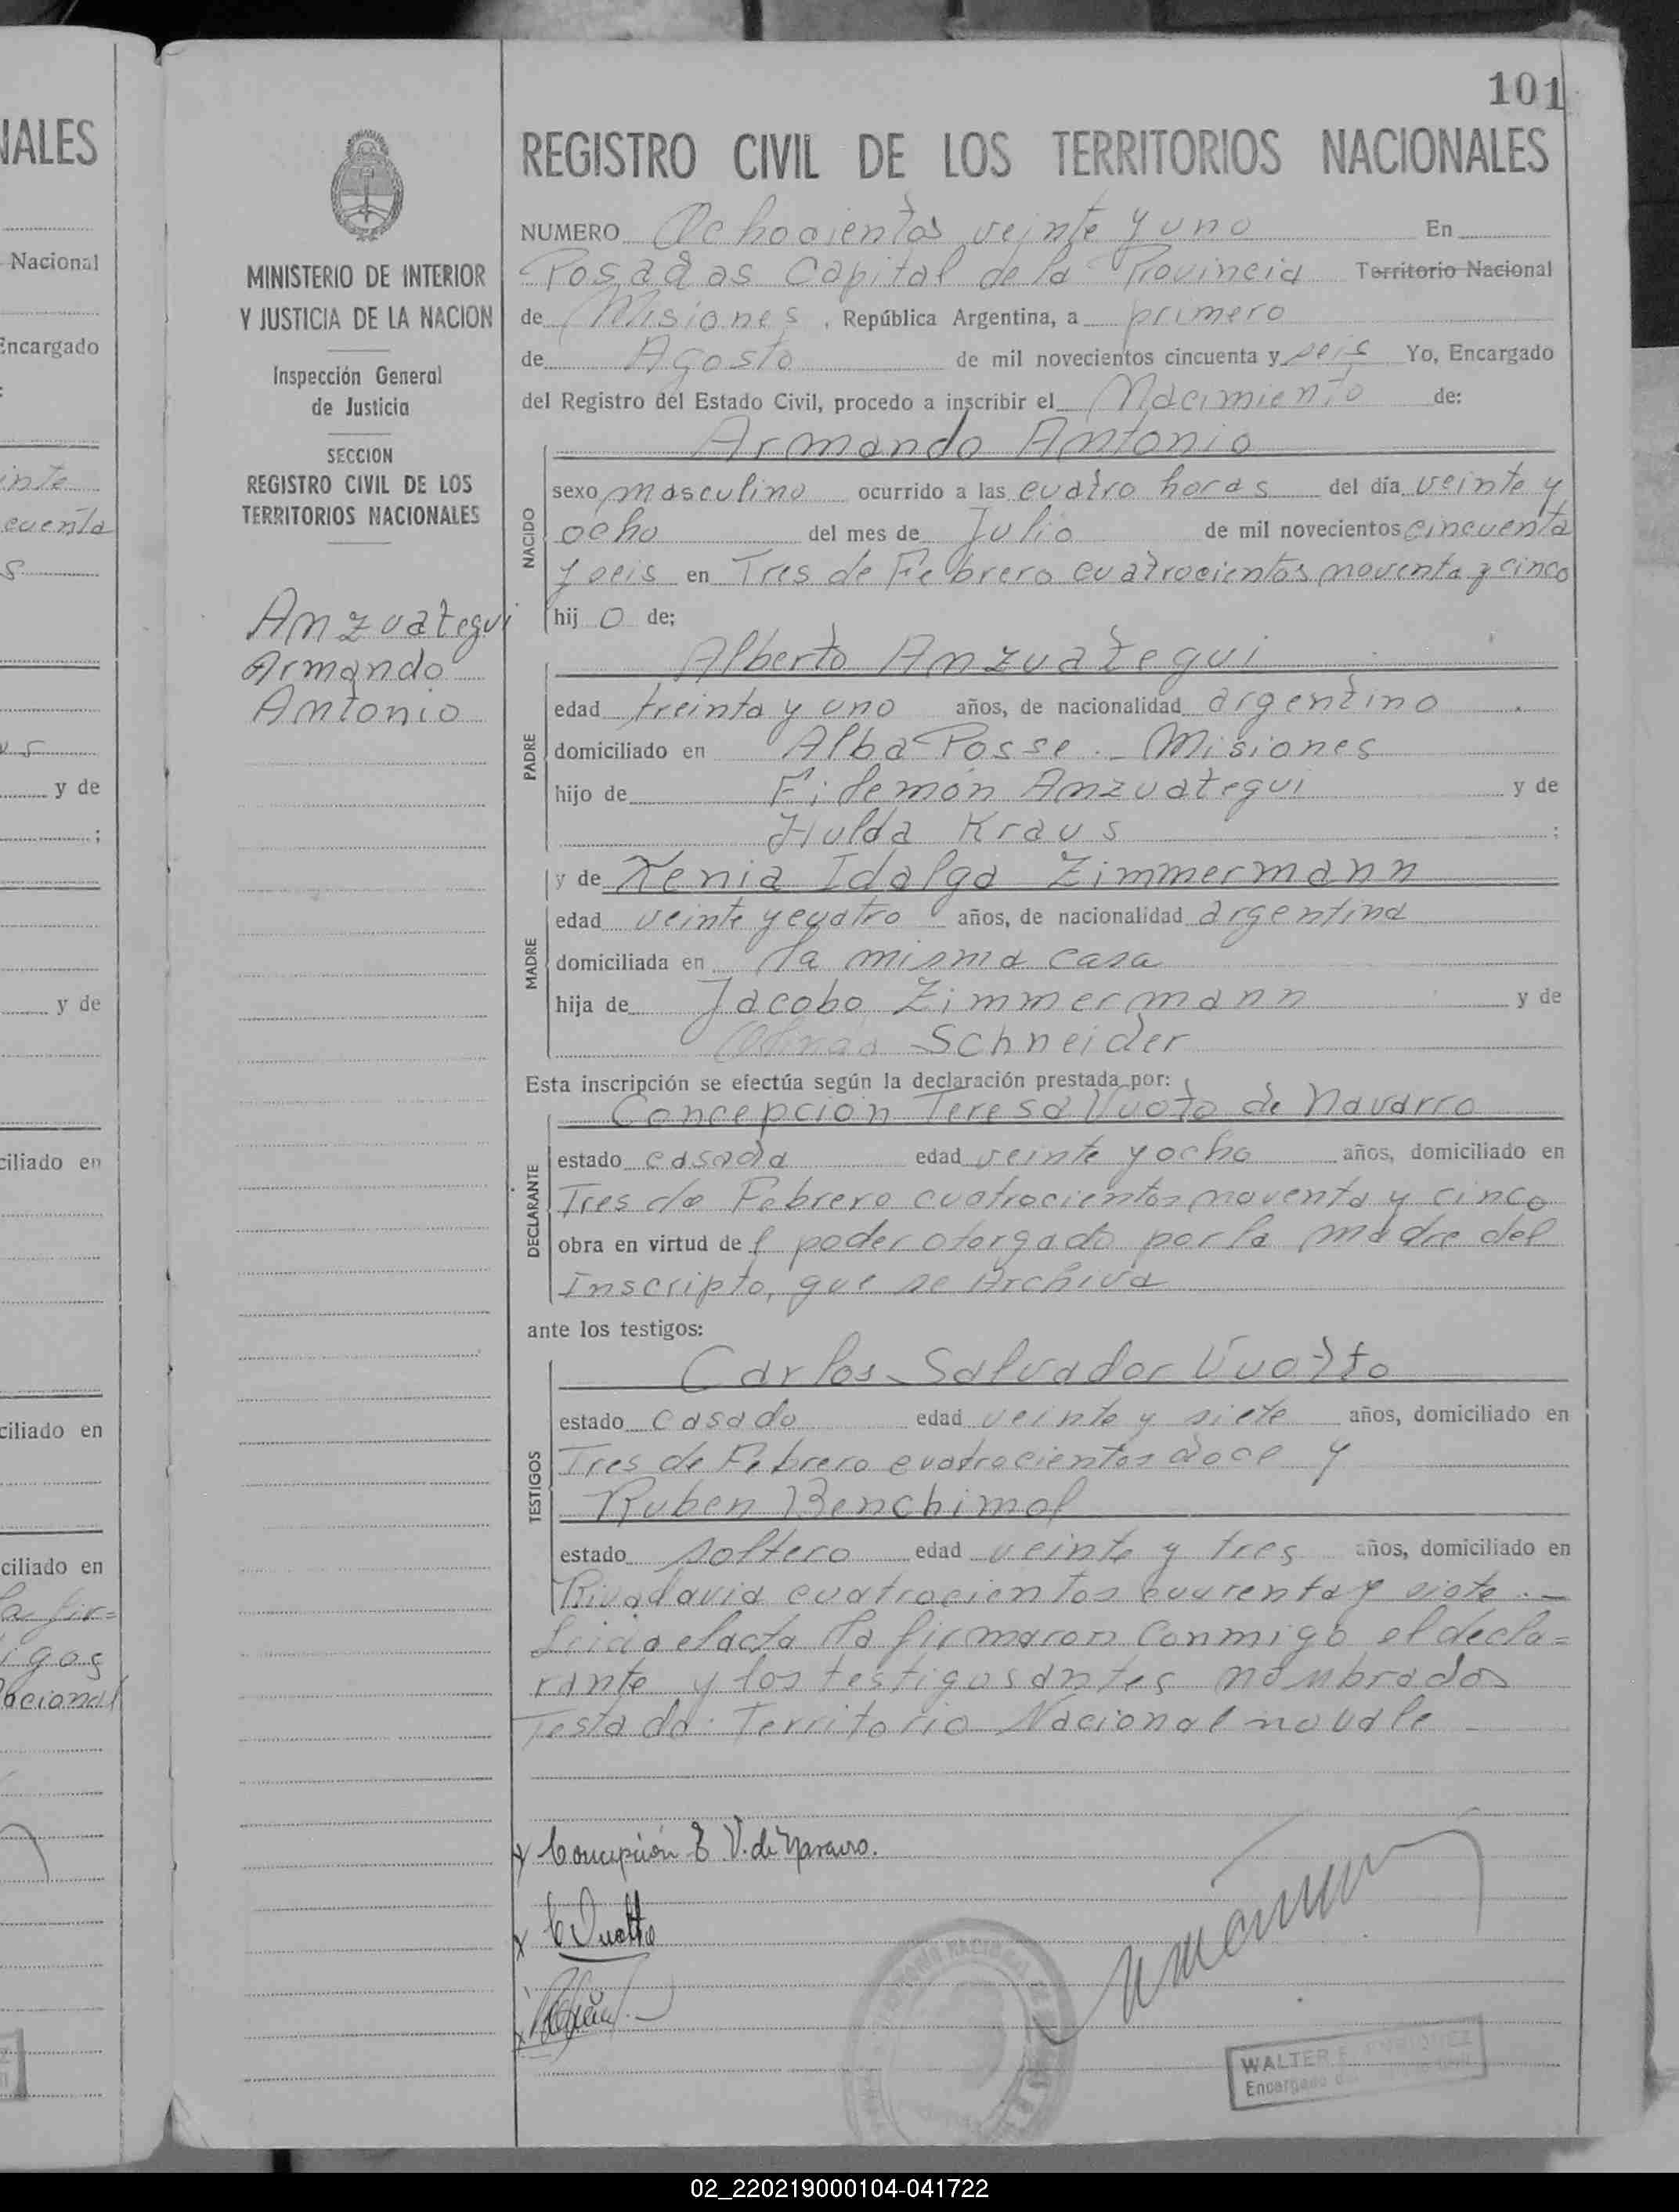 101
REGISTRO CIVIL DE LOS TERRITORIOS NACIONALES
NUMERO Ochocientos veinte y uno En
Posadas Capital de la Provincia Territorio Nacional
de Misiones, República Argentina, a primero
de Agosto de mil novecientos cincuenta y seis Yo, Encargado
del Registro del Estado Civil, procedo a inscribir el Nacimiento de:
Armando Antonio
NACIDO
sexo masculino ocurrido a las cuatro horas del día veinte y
ocho del mes de Julio de mil novecientos cincuenta
y seis en Tres de Febrero cuatrocientos noventa y cinco
hijo de;
PADRE
Alberto Anzuategui
edad treinta y uno años, de nacionalidad argentino
domiciliado en Alba Posse - Misiones
hijo de Filemón Anzuategui y de
Hulda Kraus ;
MADRE
y de Xenia Idalga Zimmermann
edad veinte y cuatro años, de nacionalidad argentina
domiciliada en la misma casa
hija de Jacobo Zimmermann y de
Schneider
Esta inscripción se efectúa según la declaración prestada por:
DECLARANTE
Concepcion Teresa Vuoto de Navarro
estado casada edad veinte y ocho años, domiciliado en
Tres de Febrero cuatrocientos noventa y cinco
obra en virtud del poder otorgado por la madre del
Inscripto, que se Archiva
ante los testigos:
TESTIGOS
Carlos Salvador Vuotto
estado casado edad veinte y siete años, domiciliado en
Tres de Febrero cuatrocientos doce y
Ruben Benchimol
estado soltero edad veinte y tres años, domiciliado en
Rivadavia cuatrocientos cuarenta y siete.-
Leida el acta la firmaron conmigo el decla=
rante y los testigos antes nombrados
Testado: Territorio Nacional no vale
x Concepción T V. de Navarro.
x C Vuotto
x
WALTER
Encargado
MINISTERIO DE INTERIOR
Y JUSTICIA DE LA NACION
Inspección General
de Justicia
SECCION
REGISTRO CIVIL DE LOS
TERRITORIOS NACIONALES
Anzuategui
Armando
Antonio
NALES
Nacional
Encargado
inte
cuenta
s
us
y de
;
y de
ciliado en
ciliado en
ciliado en
la fir=
igos
acional
02_220219000104-041722